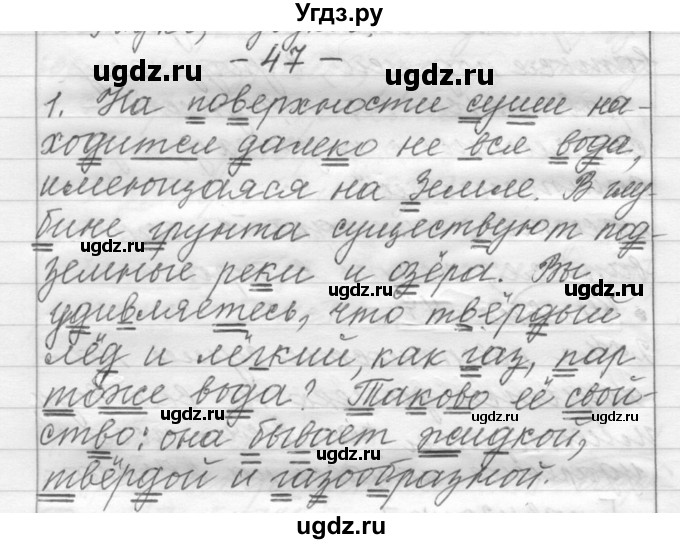 Угдз.ру
- 47 -
1. На поверхности суши на-
ходится далеко не вся вода,
имеющаяся на Земле. В глу-
бине грунта существуют под-
земные реки и озёра. Вы
удивляетесь, что твёрдый
лёд и лёгкий, как газ, пар
тоже вода? Таково её свой-
ство: она бывает жидкой,
твёрдой и газообразной.
ugdz.ru
ugdz.ru
ugdz.ru
ugdz.ru
ugdz.ru
ugdz.ru
ugdz.ru
ugdz.ru
ugdz.ru
ugdz.ru
ugdz.ru